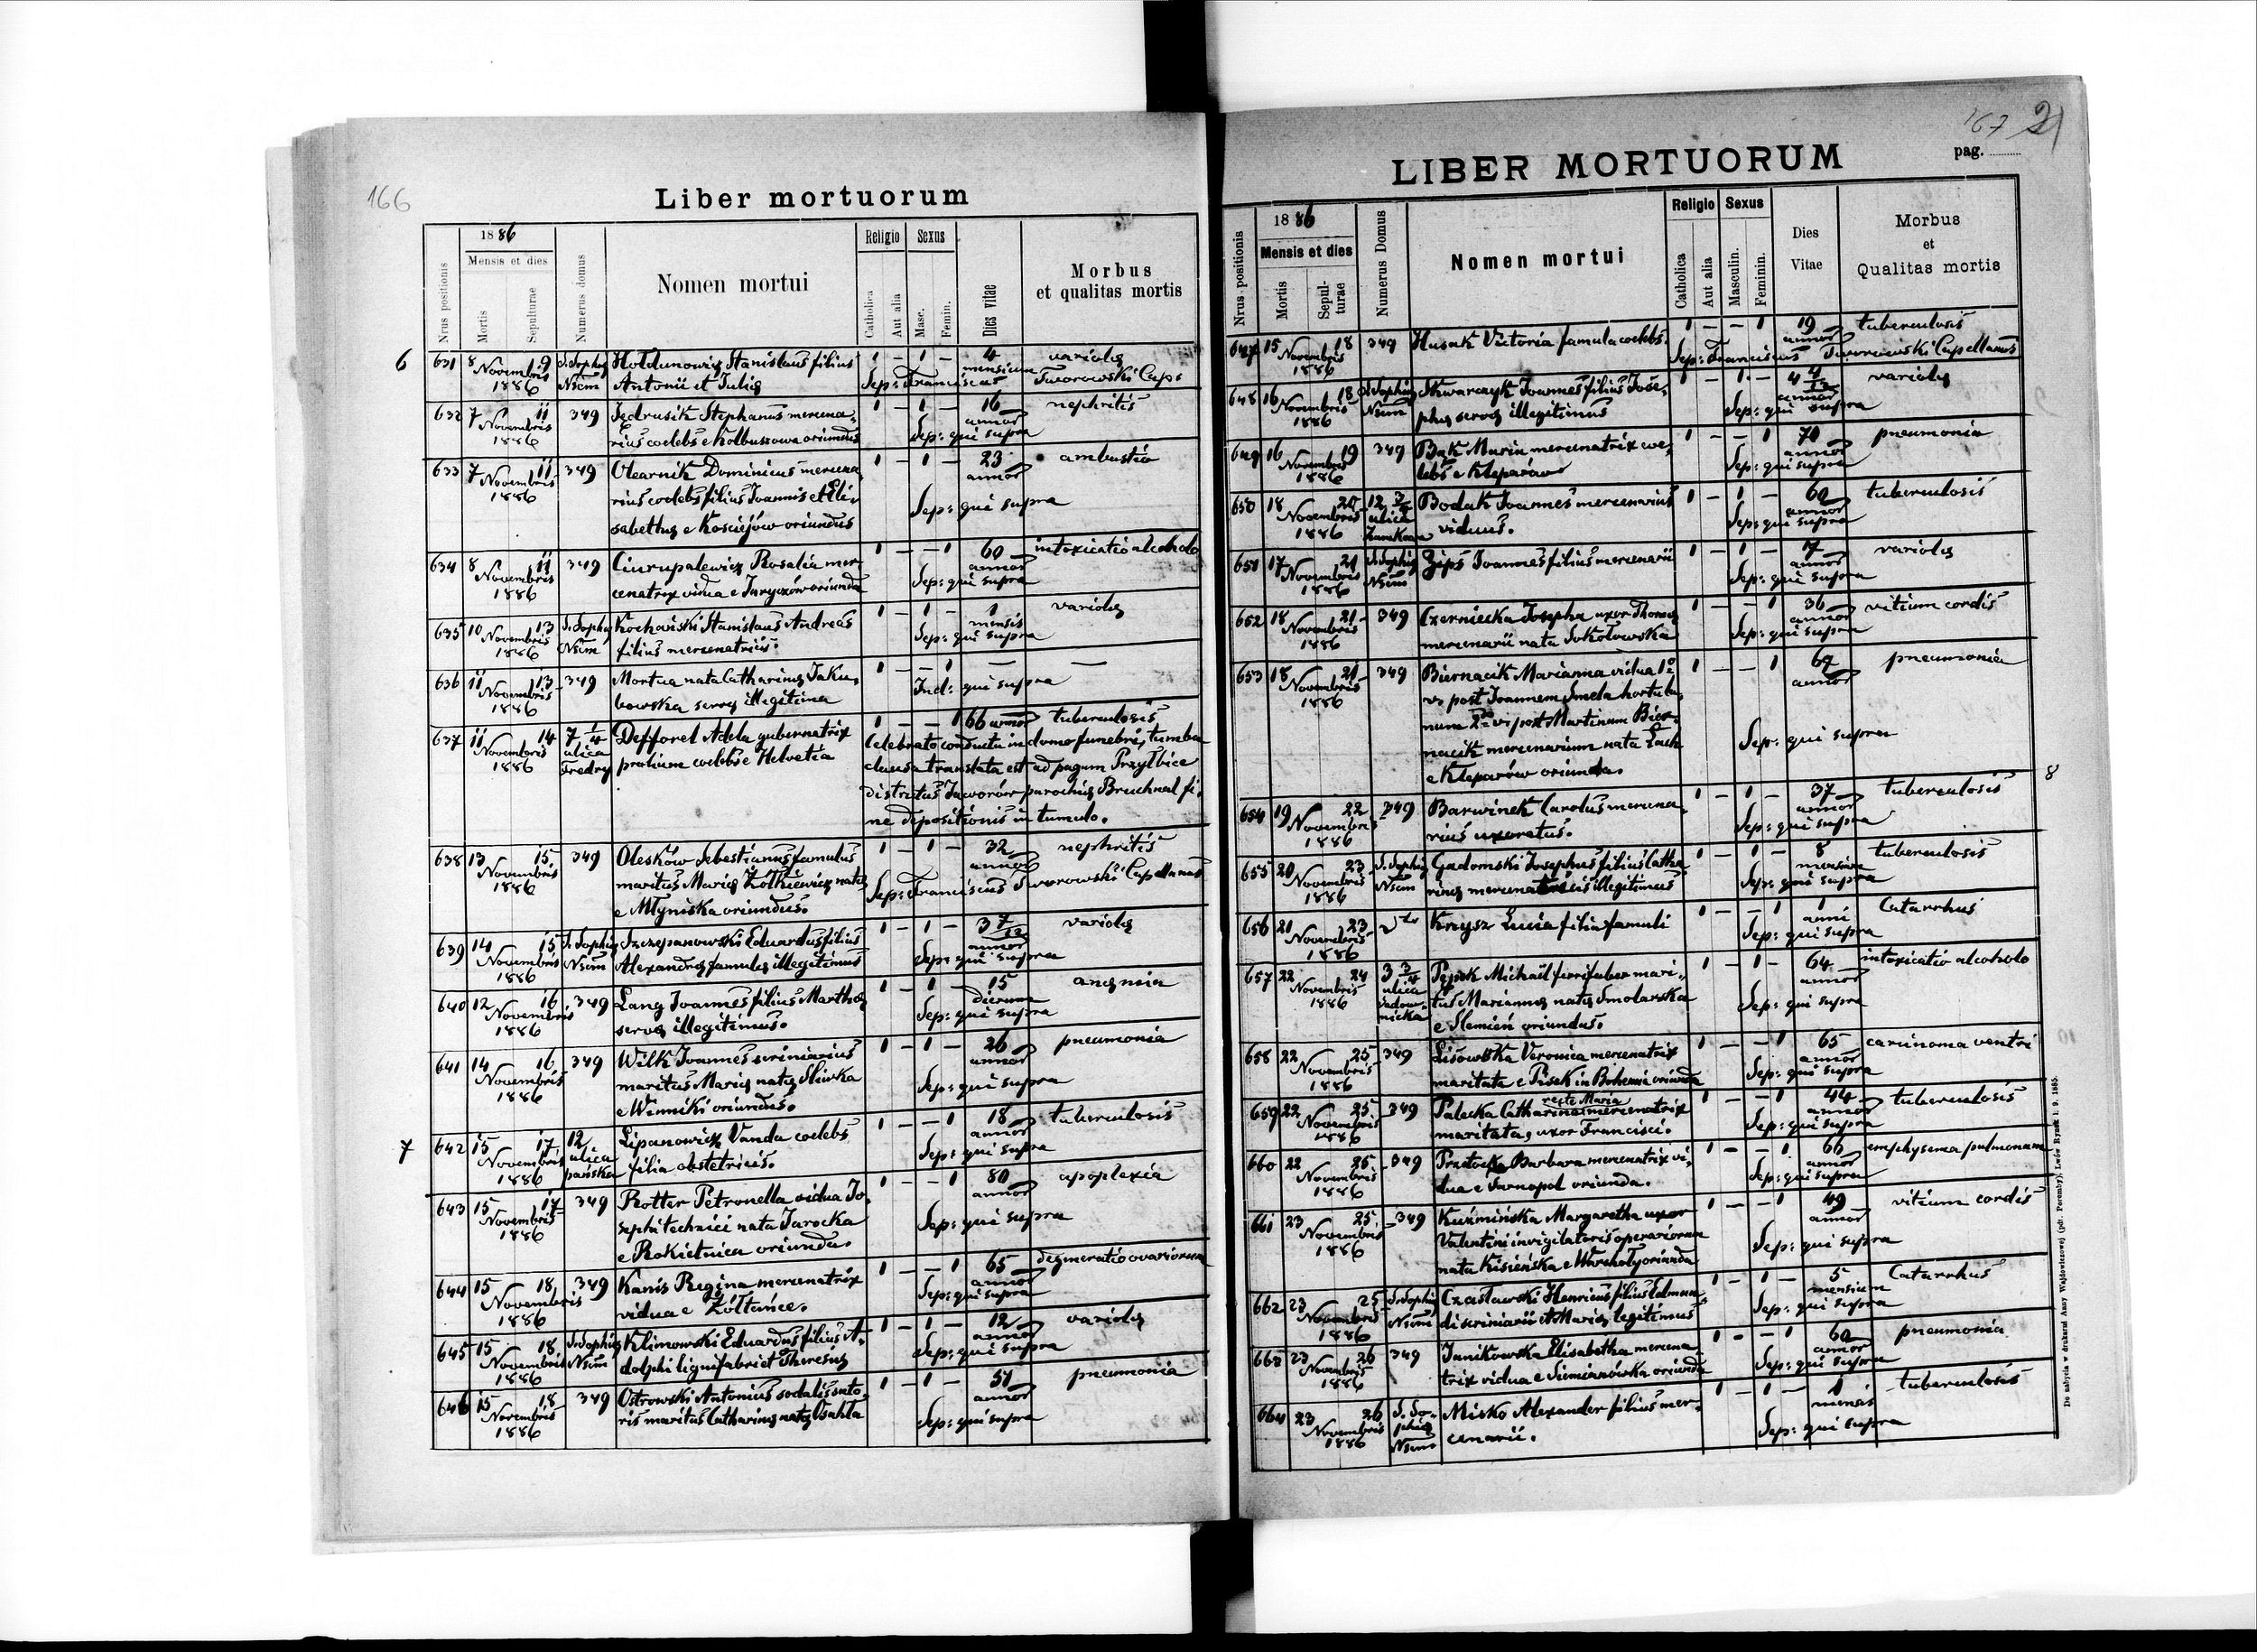 166
Liber mortuorum
Nrus positionis
1886
Mensis et dies
Mortis
Sepulturae
Numerus domus
Nomen mortui
Religio
Catholica
Aut alia
Sexus
Masc.
Femin.
Dies vitae
Morbus
et qualitas mortis
6
631 8 9 S. Sophię Hołdunowicz Stanislaus filius 1 – 1 – 4 variolę
Novembris 1886 Nsum Antonii et Julię mensium
Sep: Franciscus Tworowski Cap.
632 7 11 349 Jędrusik Stephanus mercena- 1 – 1 – 16 nephritis
Novembris annor
1886 rius coelebs e Kolbuszowa oriundus Sep: qui supra
633 7 11 349 Olearnik Dominicus mercena 1 – 1 – 23 ambustio
Novembris rius coelebs filius Joannis et Eli- annor
1886 sabethę e Kościejów oriundus Sep: qui supra
634 8 11 349 Ciurupalewicz Rosalia mer- 1 – – 1 60 intoxicatio alcoholo
Novembris cenatrix vidua e Jaryczów oriunda annor
1886 Sep: qui supra
635 10 13 S. Sophię Kochański Stanislaus Andreas 1 – 1 – 1 variolę
Novembris Nsum filius mercenatricis. mensis
1886 Sep: qui supra
636 11 13 349 Mortua nata Catharinę Jaku- 1 – – 1 — —
Novembris bowska servę illegitima Ind: qui supra
1886
637 11 14 7 1/4 Defforel Adela gubernatrix 1 – – 1 66 annor tuberculosis
Novembris ulica prolium coelebs e Helvetia
1886 Fredry
Celebrato conductu in domo funebri, tumba
clausa translata est ad pagum Przyłbice
districtus Jaworów parochię Bruchnal fi-
ne depositionis in tumulo.
638 13 15 349 Oleskow Sebestianus famulus 1 – 1 – 32 nephritis
Novembris maritus Marię Żółkiewicz natę annor
1886 e Młyniska oriundus. Sep: Franciscus Tworowski Capellanus
639 14 15 S. Sophię Szczepanowski Eduardus filius 1 – 1 – 3 7/12 variolę
Novembris Nsum Alexandrę famulę illegitimus annor
1886 Sep: qui supra
640 12 16 349 Lang Joannes filius Marthę 1 – 1 – 15 anęmia
Novembris servę illegitimus. dierum
1886 Sep: qui supra
641 14 16 349 Wilk Joannes scriniarius 1 – 1 – 26 pneumonia
Novembris maritus Marię natę Śliwka annor
1886 e Winniki oriundus. Sep: qui supra
7
642 15 17 12 Lipanowicz Vanda coelebs 1 – – 1 18 tuberculosis
Novembris ulica filia obstetricis. annor
1886 pańska Sep: qui supra
643 15 17 349 Rotter Petronella vidua Jo- 1 – – 1 80 apoplexia
Novembris sephi technici nata Jarocka annor
1886 e Rokietnica oriunda. Sep: qui supra
644 15 18 349 Kanis Regina mercenatrix 1 – – 1 65 degeneratio ovariorum
Novembris vidua e Żółtańce. annor
1886 Sep: qui supra
645 15 18 S. Sophię Klimowski Eduardus filius A- 1 – 1 – 12 variolę
Novembris Nsum dolphi lignifabri et Theresię annor
1886 Sep: qui supra
646 15 18 349 Ostrowski Antonius sodalis suto- 1 – 1 – 51 pneumonia
Novembris ris maritus Catharinę natę Osuchta annor
1886 Sep: qui supra
167
LIBER MORTUORUM
pag.
Nrus positionis
1886
Mensis et dies
Mortis
Sepul-
turae
Numerus Domus
Nomen mortui
Religio
Catholica
Aut alia
Sexus
Masculin.
Feminin.
Dies
Vitae
Morbus
et
Qualitas mortis
647 15 18 349 Husak Victoria famula coelebs. 1 – – 1 19 tuberculosis
Novembris annor
1886 Sep: Franciscus Tworowski Capellanus
648 16 18 S. Sophię Skwarczyk Joannes filius Jose- 1 – 1 – 4 4/12 variolę
Novembris Nsum phę servę illegitimus annor
1886 Sep: qui supra
649 16 19 349 Bąk Maria mercenatrix coe- 1 – – 1 70 pneumonia
Novembris lebs e Kleparów annor
1886 Sep: qui supra
650 18 20 12 Bodak Joannes mercenarius 1 – 1 – 60 tuberculosis
Novembris ulica viduus. annor
1886 Sep: qui supra
651 17 21 S. Sophię Zips Joannes filius mercenarii 1 – 1 – 7 variolę
Novembris Nsum annor
1886 Sep: qui supra
652 18 21 349 Czerniecka Josepha uxor Thomę 1 – – 1 36 vitium cordis
Novembris mercenarii nata Sokołowska annor
1886 Sep: qui supra
653 18 21 349 Biernacik Marianna vidua 1o 1 – – 1 67 pneumonia
Novembris vo post Joannem Smela hortula- annor
1886 num 2do vo post Martinum Bier-
nacik mercenarium nata Lach Sep: qui supra
e Kleparów oriunda.
8
654 19 22 349 Barwinek Carolus mercena- 1 – 1 – 37 tuberculosis
Novembris rius uxoratus. annor
1886 Sep: qui supra
655 20 23 S. Sophię Gadomski Josephus filius Catha- 1 – 1 – 8 tuberculosis
Novembris Nsum rinę mercenatricis illegitimus mensium
1886 Sep: qui supra
656 21 23 dto Krzysz Lucia filia famuli 1 – – 1 1 Catarrhus
Novembris anni
1886 Sep: qui supra
657 22 24 3 3/4 Pępek Michaël ferrifaber mari- 1 – 1 – 64 intoxicatio alcoholo
Novembris ulica tus Mariannę natę Smolarska annor
1886 e Slemień oriundus. Sep: qui supra
658 22 25 349 Lisowska Veronica mercenatrix 1 – – 1 65 carcinoma ventri
Novembris maritata e Pisek in Bohemia oriunda annor
1886 Sep: qui supra
659 22 25 349 Palecka Catharina recte Maria mercenatrix 1 – – 1 44 tuberculosis
Novembris maritata, uxor Francisci. annor
1886 Sep: qui supra
660 22 25 349 Barbara mercenatrix vi- 1 – – 1 66 emphysema pulmonum
Novembris dua e Tarnopol oriunda. annor
1886 Sep: qui supra
661 23 25 349 Kuźmińska Margaretha uxor 1 – – 1 49 vitium cordis
Novembris Valentini invigilatoris operariorum annor
1886 nata Kisieńska e Warchoły oriunda Sep: qui supra
662 23 25 S. Sophię Czasławski Henricus filius Edmun- 1 – 1 – 5 Catarrhus
Novembris Nsum di scriniarii et Marię legitimus mensium
1886 Sep: qui supra
663 23 26 349 Janikowska Elisabetha mercena- 1 – – 1 60 pneumonia
Novembris trix vidua e Siemianówka oriunda annor
1886 Sep: qui supra
664 23 26 S. So- Misko Alexander filius mer- 1 – 1 – 1 tuberculosis
Novembris phię cenarii. mensis
1886 Nsum Sep: qui supra
Do nabycia w drukarni Anny Wajdowiczowej (pdr. Poremby), Lwów Rynek l. 9. 1885.